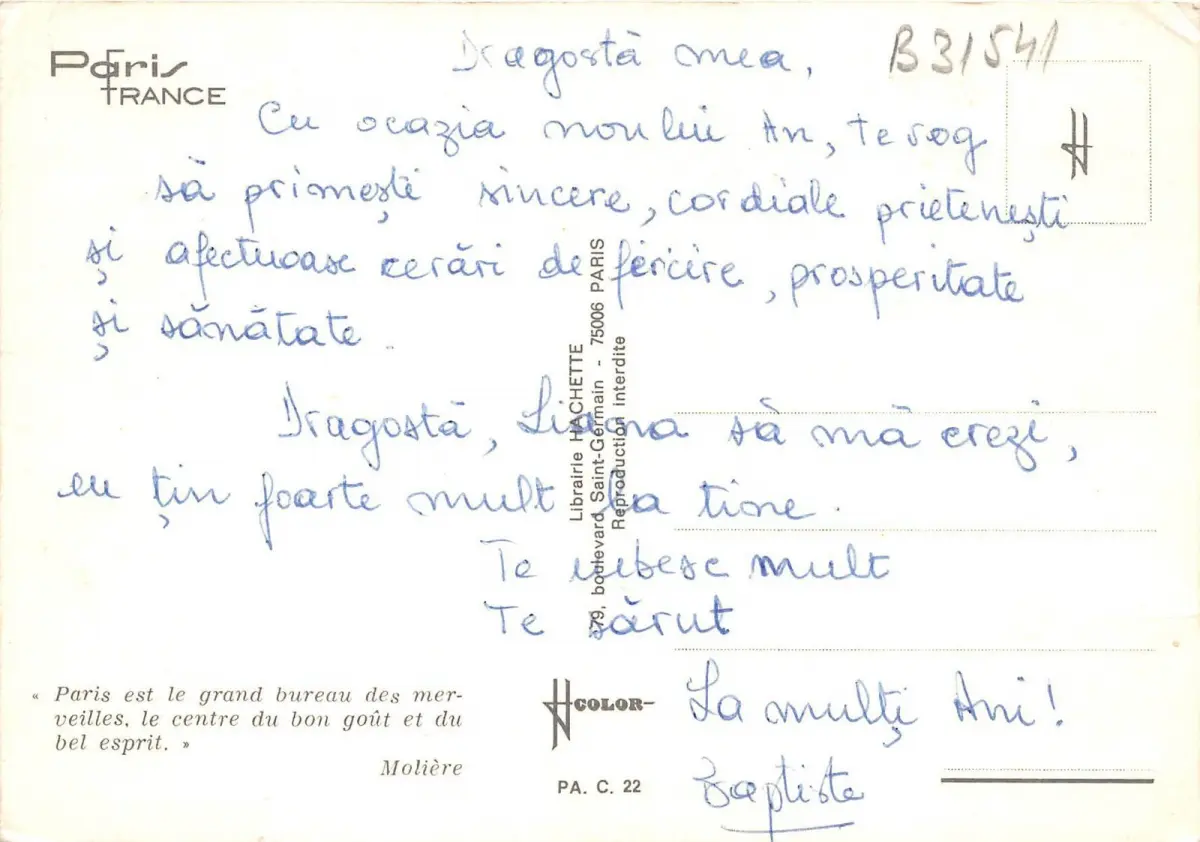 Paris
FRANCE
B31541
Dragostă mea,
Cu ocazia noului An, te rog
să primești sincere, cordiale prietenești
și afectuoase cerări de fericire, prosperitate
și sănătate.
Dragostă, Liana să mă crezi,
eu țin foarte mult la tine.
Te iubesc mult
Te sărut
La mulți Ani!
Baptiste
Librairie HACHETTE
79, boulevard Saint-Germain - 75006 PARIS
Reproduction interdite
« Paris est le grand bureau des mer-
veilles, le centre du bon goût et du
bel esprit. »
Molière
COLOR
PA. C. 22